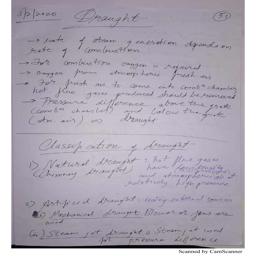 Draught
→ rate of steam generation depends on
rate of combustion
→ For combustion oxygen is required
→ oxygen from atmospheric fresh air
→ For fresh air to come into combⁿ chamber
hot flue gases produced should be removed
→ Pressure difference above the grate
(combⁿ chamber) and below the grate
(atm air) is draught
Classification of draught-
1) Natural draught - hot flue gases
(Chimney draught) have low density
and atmospheric air at
relatively high pressure
2) Artificial draught -
Mechanical draught Blower or fans are
used
Steam jet draught Steam jet used
for pressure difference
Scanned by CamScanner